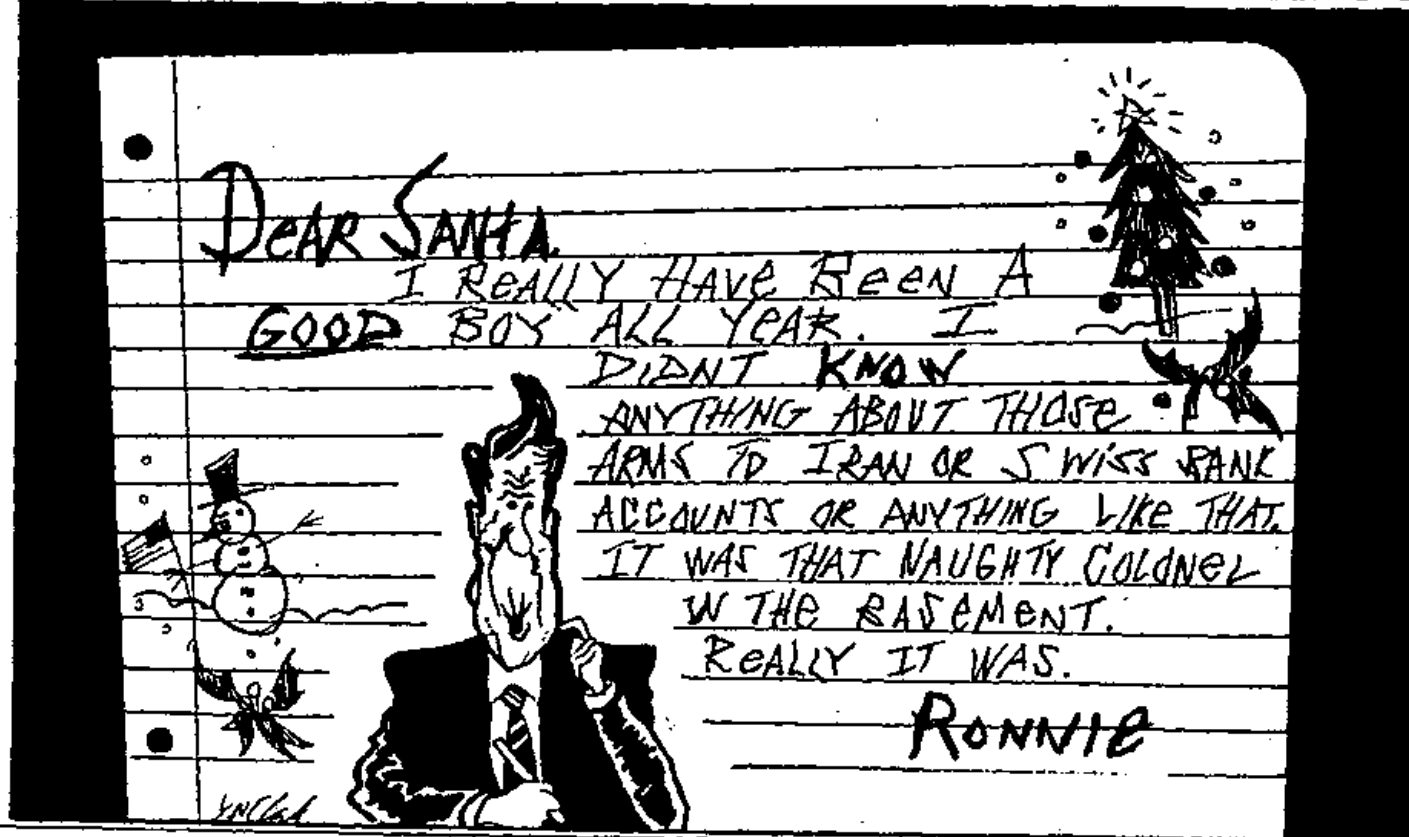 DEAR SANTA.
I REALLY HAVE BEEN A
GOOD BOY ALL YEAR. I
DIDNT KNOW
ANYTHING ABOUT THOSE
ARMS TO IRAN OR SWISS BANK
ACCOUNTS OR ANYTHING LIKE THAT.
IT WAS THAT NAUGHTY COLONEL
IN THE BASEMENT.
REALLY IT WAS.
RONNIE